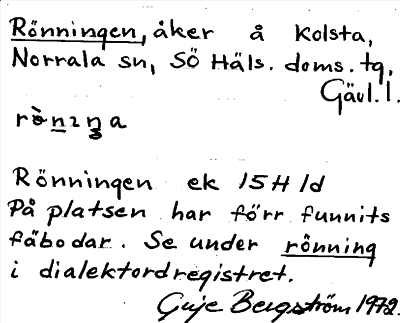 Rönningen, åker å Kolsta,
Norrala sn, SÖ Häls. doms. tg,
Gävl. l.
Rönningen ek 15H 1d
På platsen har förr funnits
fäbodar. Se under rönning
i dialektordregistret.
Guje Bergström 1972.